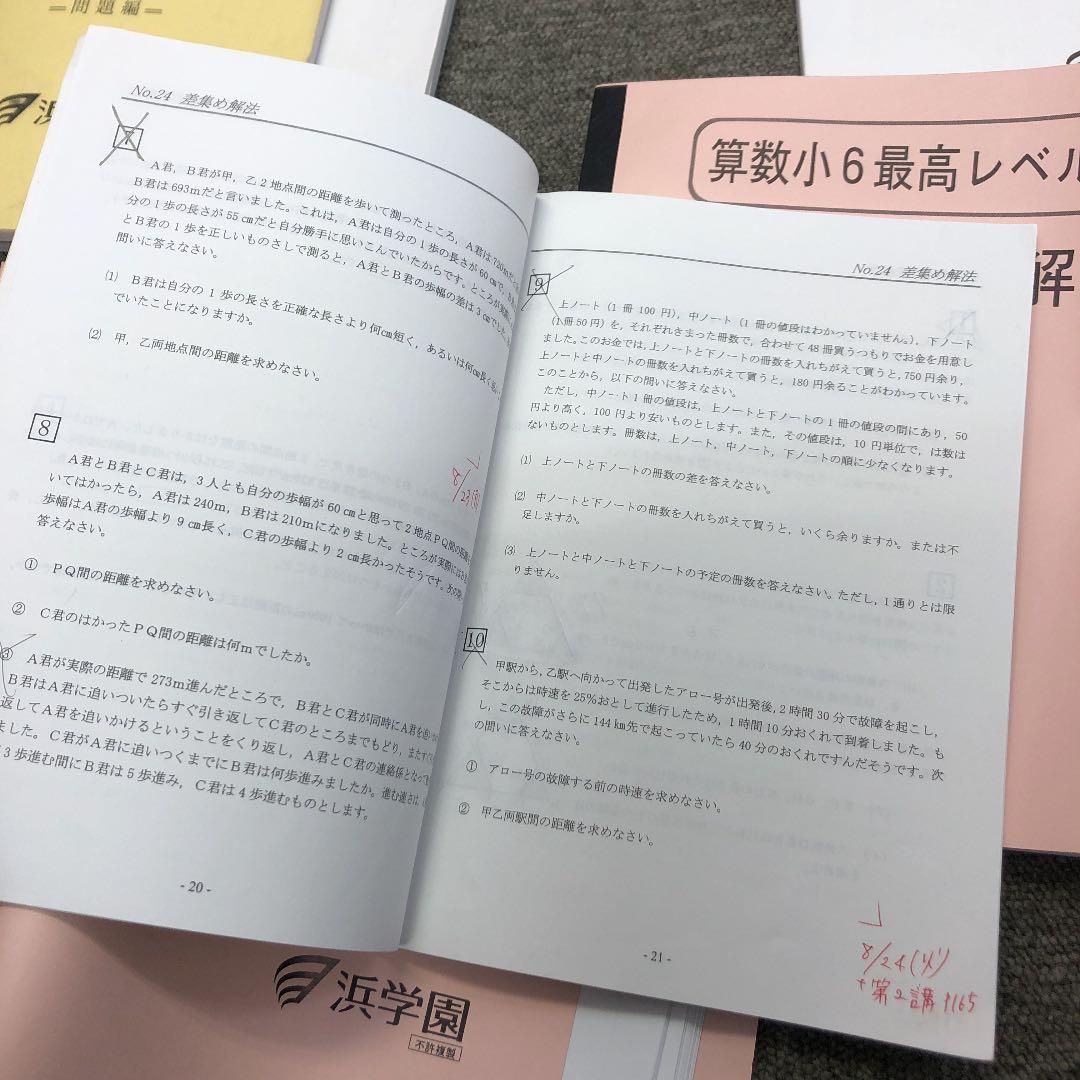 ＝問題編＝
浜
算数小6最高レベル
解
No.24 差集め解法
7
A君，B君が甲，乙2地点間の距離を歩いて測ったところ，A君は720m
B君は693mだと言いました。これは，A君は自分の1歩の長さが60㎝で，
分の1歩の長さが55㎝だと自分勝手に思いこんでいたからです。ところが実際に
とB君の1歩を正しいものさしで測ると，A君とB君の歩幅の差は3㎝でした。
問いに答えなさい。
⑴ B君は自分の1歩の長さを正確な長さより何㎝短く，あるいは何㎝長く
でいたことになりますか。
⑵ 甲，乙両地点間の距離を求めなさい。
8
A君とB君とC君は，3人とも自分の歩幅が60㎝と思って2地点PQ間の距離
いてはかったら，A君は240m，B君は210mになりました。ところが実際には
歩幅はA君の歩幅より9㎝長く，C君の歩幅より2㎝長かったそうです。次の
答えなさい。
① PQ間の距離を求めなさい。
② C君のはかったPQ間の距離は何mでしたか。
③ A君が実際の距離で273m進んだところで，B君とC君が同時にA君を
B君はA君に追いついたらすぐ引き返してC君のところまでもどり，また
返してA君を追いかけるということをくり返し，A君とC君の連絡係となって
ました。C君がA君に追いつくまでにB君は何歩進みましたか。進む速さは，
3歩進む間にB君は5歩進み，C君は4歩進むものとします。
8/23(月)
- 20 -
No.24 差集め解法
9
上ノート（1冊100円），中ノート（1冊の値段はわかっていません。），下ノート
（1冊50円）を，それぞれきまった冊数で，合わせて48冊買うつもりでお金を用意し
ました。このお金では，上ノートと下ノートの冊数を入れちがえて買うと，750円余り，
上ノートと中ノートの冊数を入れちがえて買うと，180円余ることがわかっています。
このことから，以下の問いに答えなさい。
ただし，中ノート1冊の値段は，上ノートと下ノートの1冊の値段の間にあり，50
円より高く，100円より安いものとします。また，その値段は，10円単位で，は数は
ないものとします。冊数は，上ノート，中ノート，下ノートの順に少なくなります。
⑴ 上ノートと下ノートの冊数の差を答えなさい。
⑵ 中ノートと下ノートの冊数を入れちがえて買うと，いくら余りますか。または不
足しますか。
⑶ 上ノートと中ノートと下ノートの予定の冊数を答えなさい。ただし，1通りとは限
りません。
10
甲駅から，乙駅へ向かって出発したアロー号が出発後，2時間30分で故障を起こし，
そこからは時速を25%おとして進行したため，1時間10分おくれて到着しました。も
し，この故障がさらに144㎞先で起こっていたら40分のおくれですんだそうです。次
の問いに答えなさい。
① アロー号の故障する前の時速を求めなさい。
② 甲乙両駅間の距離を求めなさい。
- 21 -
8/24(火)
+第2講 P165
浜学園
不許複製